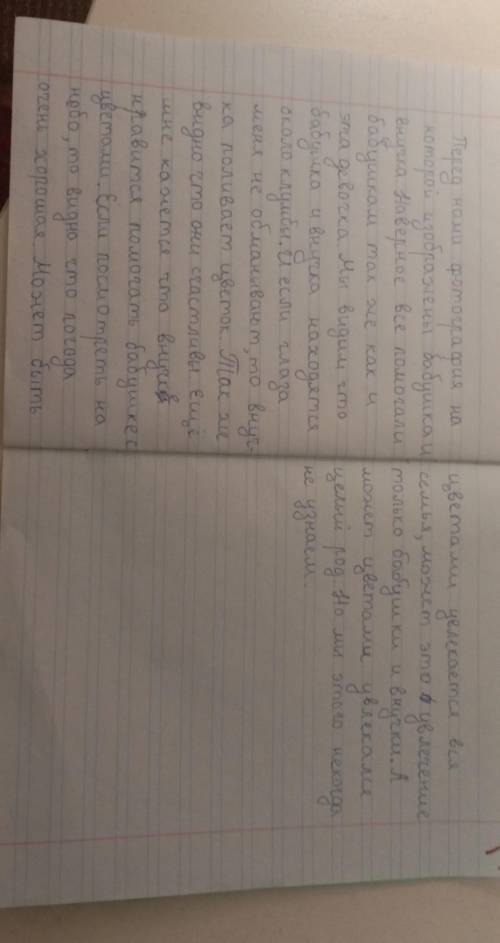 Перед нами фотография на
которой изображены бабушка и
внучка. Наверное все помогали
бабушкам так же как и
эта девочка. Мы видим что
бабушка и внучка находятся
около клумбы. И если глаза
меня не обманивают, то внуч-
ка поливает цветок. Так же
видно что они счастливы. Ещё
мне кажется что внучке
нравится помогать бабушке с
цветами. Если посмотреть на
небо, то видно что погода
очень хорошая. Может быть
цветами увлекается вся
семья, может это увлечение
только бабушки и внучки. А
может цветами увлекался
целый род. Но мы этого некогда
не узнаем.